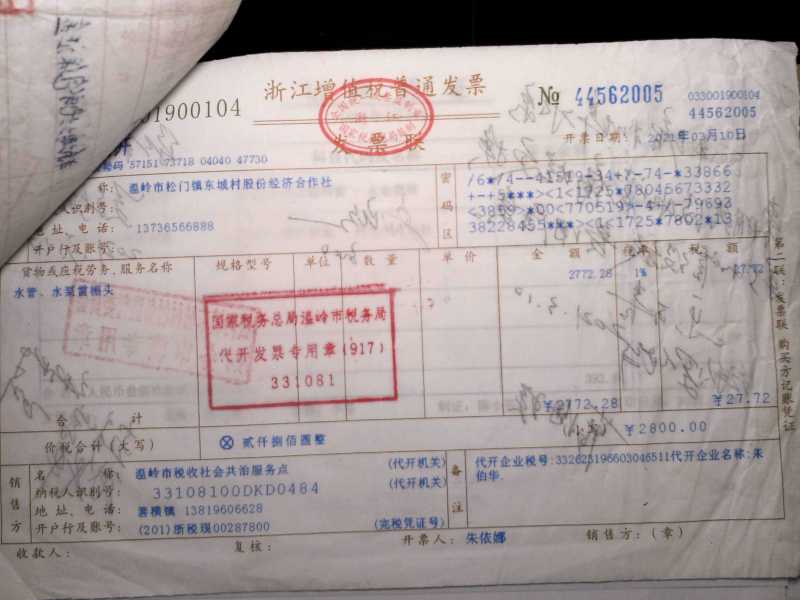 浙江增值税普通发票
发票联
01900104
№ 44562005
033001900104
44562005
开票日期: 2021年03月10日
57151 73718 04040 47730
称: 温岭市松门镇东城村股份经济合作社
人识别号:
地址、电话: 13736566888
开户行及账号:
密码区
/6*/4--41519-34+7-74-*33866
+-+5***><1<1725*78045673332
<3859>*00<770519>-4+/-79693
38228455***><1<1725*7802*13
货物或应税劳务、服务名称 规格型号 单位 数量 单价 金额 税率 税额
水管、水泵 2772.28 1% 27.72
国家税务总局温岭市税务局
代开发票专用章(917)
331081
合计 ¥2772.28 ¥27.72
价税合计(大写) ⊗ 贰仟捌佰圆整 ¥2800.00
销售方
名称: 温岭市税收社会共治服务点 (代开机关)
纳税人识别号: 33108100DKD0484 (代开机关)
地址、电话: 箬横镇 13819606628
开户行及账号: (201)浙税现00287800 (完税凭证号)
备注
代开企业税号:332623196603046511代开企业名称:朱
伯华
收款人: 复核: 开票人: 朱依娜 销售方:(章)
第二联:发票联 购买方记账凭证